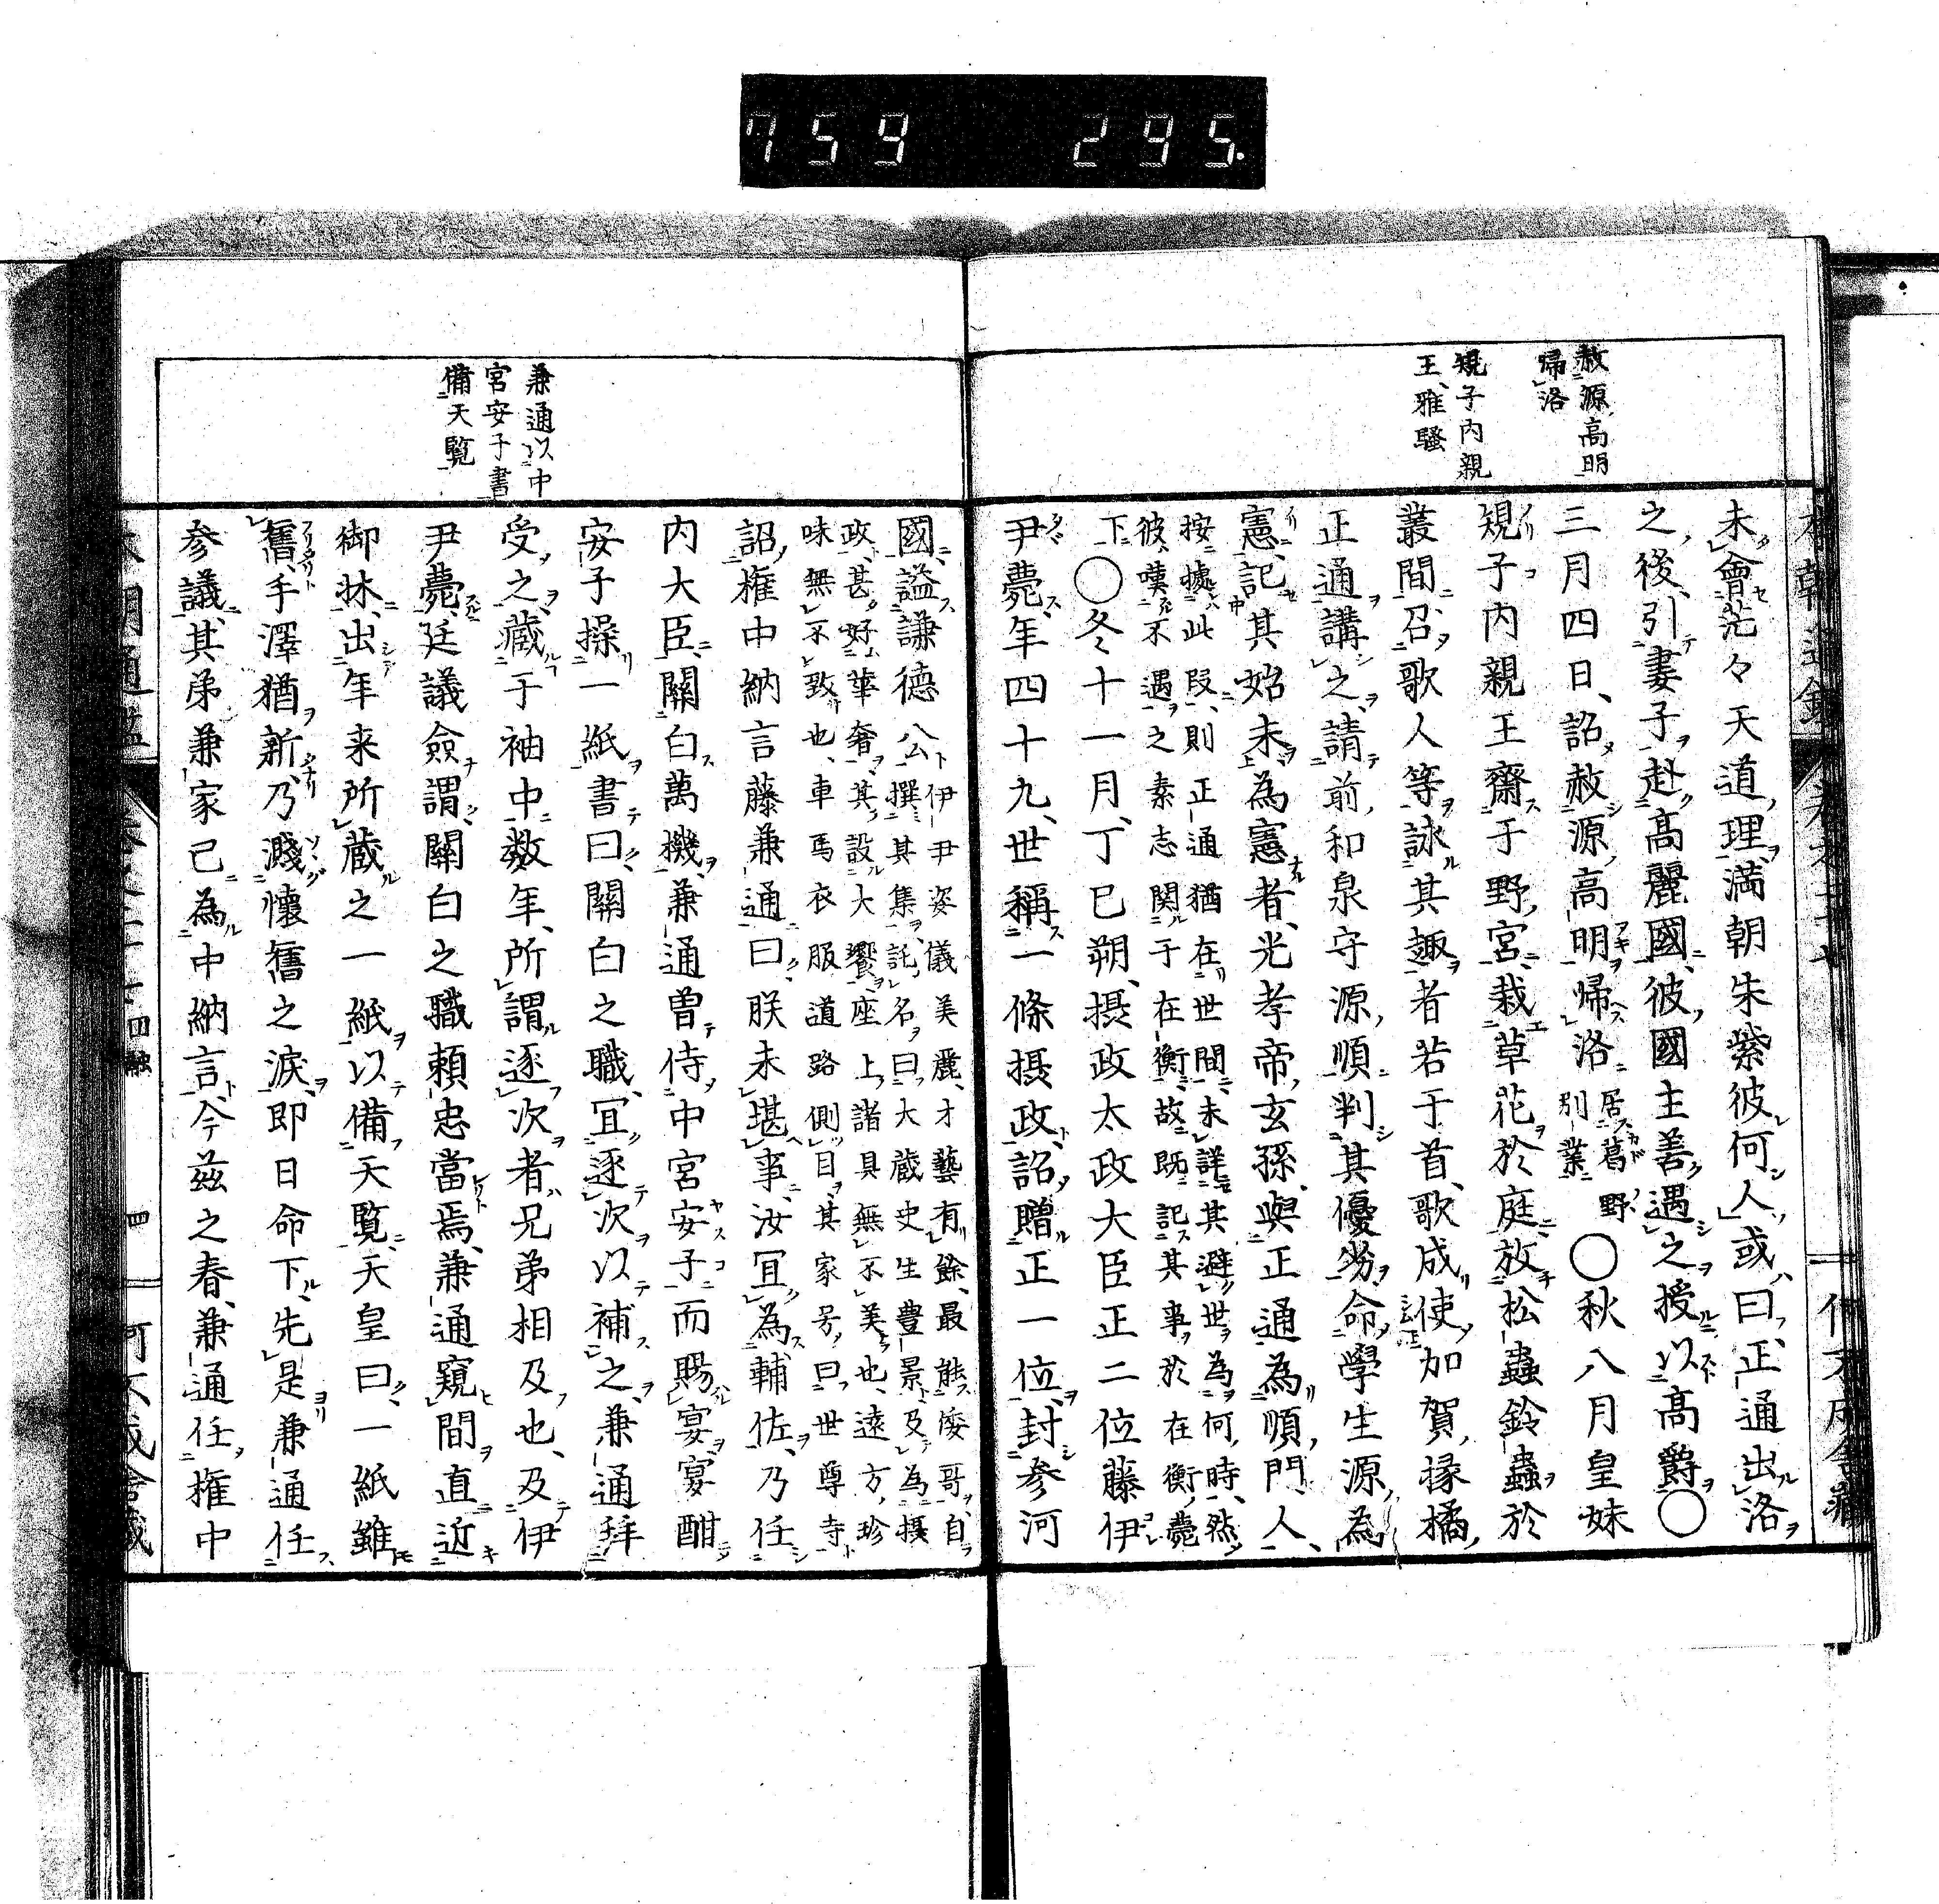 759 295.
赦源高明
帰洛
規子内親
王雅騒
未會茫々天道理満朝朱紫彼何人或曰正通出洛
之後引妻子赴高麗國彼國主善遇之授以高爵〇
三月四日詔赦源高明帰洛居葛野
別業〇秋八月皇妹
規子内親王齋于野宮栽草花於庭放松蟲鈴蟲於
叢間召歌人等詠其趣者若于首歌成使加賀掾橘
正通講之請前和泉守源順判其優劣命學生源為
憲記其始末為憲者光孝帝玄孫與正通為順門人
按據此段則正通猶在世間未詳其避世為何時然
彼嘆不遇之素志関于在衡故既記其事於在衡薨
下〇冬十一月丁巳朔摂政太政大臣正二位藤伊
尹薨年四十九世稱一條摂政詔贈正一位封参河
兼通以中
宮安子書
備天覧
國謚謙德公伊尹姿儀美麗才藝有餘最能倭哥自
撰其集託名曰大蔵史生豊景及為摂
政甚好華奢其設大饗座上諸具無不美也遠方珍
味無不致也車馬衣服道路側目其家号曰世尊寺
詔権中納言藤兼通曰朕未堪事汝冝為輔佐乃任
内大臣關白萬機兼通曽侍中宮安子而賜宴宴酣
安子操一紙書曰關白之職冝逐次以補之兼通拜
受之蔵于袖中数年所謂逐次者兄弟相及也及伊
尹薨廷議僉謂關白之職頼忠當焉兼通窺間直近
御牀出年来所蔵之一紙以備天覧天皇曰一紙雖
舊手澤猶新乃濺懐舊之涙即日命下先是兼通任
参議其弟兼家已為中納言今茲之春兼通任権中
四